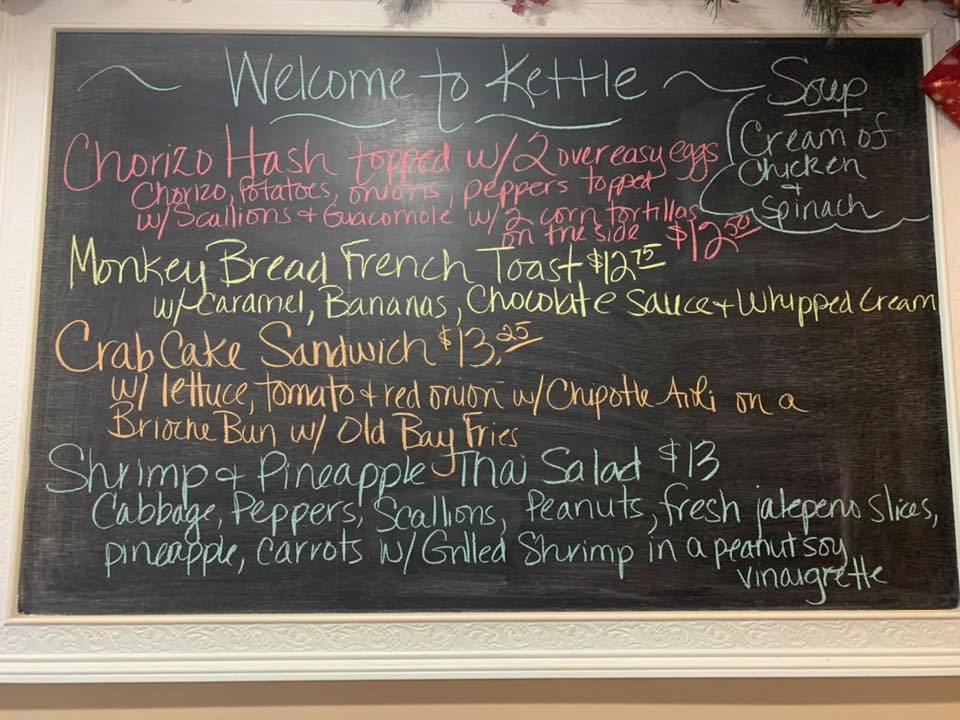 Welcome to Kettle
Soup
Cream of
Chicken
+
Spinach
Chorizo Hash topped w/2 overeasy eggs
Chorizo, Potatoes, onions, peppers topped
w/ Scallions + Guacomole w/ 2 corn tortillas
on the side $12.50
Monkey Bread French Toast $12.75
w/ Caramel, Bananas, Chocolate Sauce + Whipped Cream
Crab Cake Sandwich $13.25
w/ lettuce, tomato + red onion w/ Chipotle Aioli on a
Brioche Bun w/ Old Bay Fries
Shrimp + Pineapple Thai Salad $13
Cabbage, Peppers, Scallions, Peanuts, fresh jalepeno slices,
pineapple, carrots w/ Grilled Shrimp in a peanut soy
vinaigrette